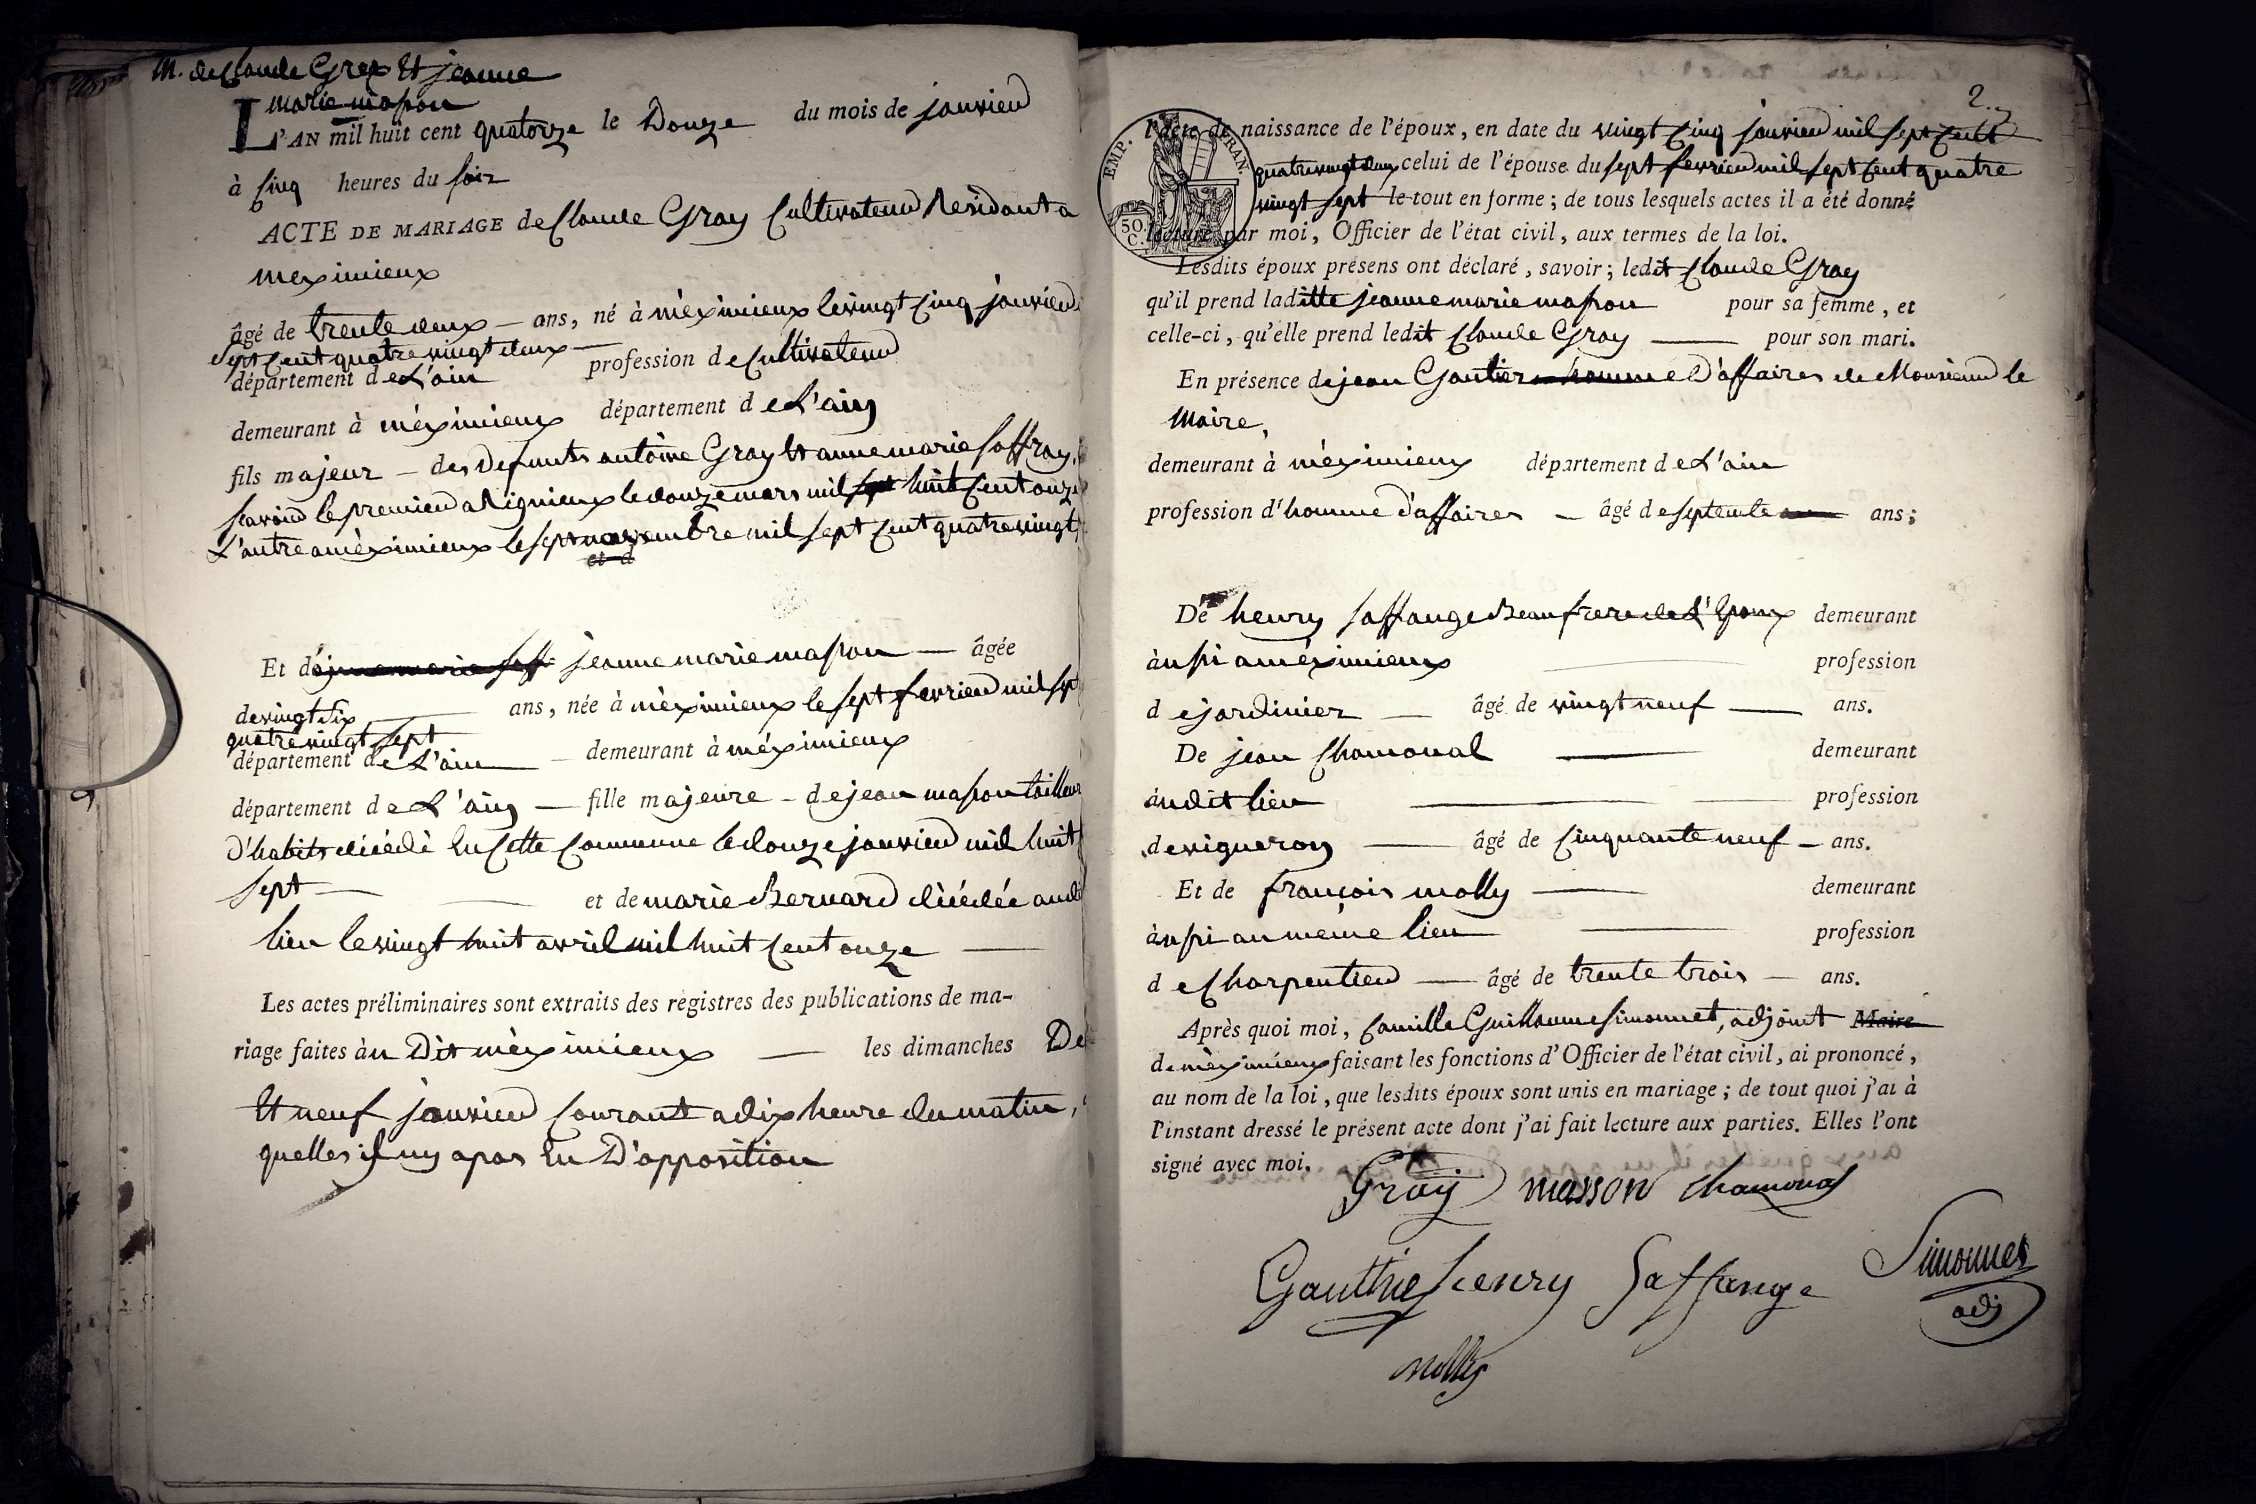 M. de Claude Grey Et jeanne
marie masson
L'AN mil huit cent quatorze le Douze du mois de janvier
à Cinq heures du soir
ACTE DE MARIAGE de Claude Gray Cultivateur Résidant a
meximieux
âgé de trente deux — ans, né à mèximieux le vingt Cinq janvier
sept Cent quatre vingt deux —
département de L'ain profession de Cultivateur
demeurant à mèximieux département de L'ain
fils majeur — des Defunts antoine Gray Et anne marie saffray,
savoir le premier a Rignieux le douze mars mil sept huit Cent onze
L'autre a mèximieux le sept novembre mil sept Cent quatre vingt
et d
Et de jeanne marie saff jeanne marie masson — âgée
de vingt six ans, née à mèximieux le sept fevrier mil sept
quatre vingt sept
département de L'ain — demeurant à mèximieux
département de L'ain — fille majeure — de jean masson tailleur
D'habits décédé En Cette Commune le douze janvier mil huit
sept — et de marie Bernard décédée audit
lieu le vingt huit avril mil huit Cent onze —
Les actes préliminaires sont extraits des registres des publications de ma-
riage faites àu Dit mèximieux — les dimanches De
Et neuf janvier Courant a dix heure du matin,
quelles il ny a pas Eu D'opposition
2.
EMP. FRAN.
50.
C.
l'acte de naissance de l'époux, en date du vingt Cinq janvier mil sept Cent
quatre vingt deux celui de l'épouse du sept fevrier mil sept Cent quatre
vingt sept le tout en forme; de tous lesquels actes il a été donné
lecture par moi, Officier de l'état civil, aux termes de la loi.
Lesdits époux présens ont déclaré, savoir; ledit Claude Gray
qu'il prend laditte jeanne marie masson pour sa femme, et
celle-ci, qu'elle prend ledit Claude Gray — pour son mari.
En présence de jean Gautier homme D'affaires de Monsieur le
Maire,
demeurant à mèximieux département de L'ain
profession d'homme d'affaires — âgé de septente ans;
De henry saffange Beaufrere de L'Epoux demeurant
àussi a mèximieux profession
de jardinier — âgé de vingt neuf — ans.
De jean Chamoual — demeurant
àudit lieu — profession
de vigneron — âgé de Cinquante neuf — ans.
Et de françois molly — demeurant
àussi au même lieu — profession
de Charpentier — âgé de trente trois — ans.
Après quoi moi, Camille Guillaume Simonnet, adjoint Maire
de mèximieux faisant les fonctions d'Officier de l'état civil, ai prononcé,
au nom de la loi, que lesdits époux sont unis en mariage; de tout quoi j'ai à
l'instant dressé le présent acte dont j'ai fait lecture aux parties. Elles l'ont
signé avec moi.
Gray masson Chamoual
Gauthie henry Saffange Simonnet
adj
Molly